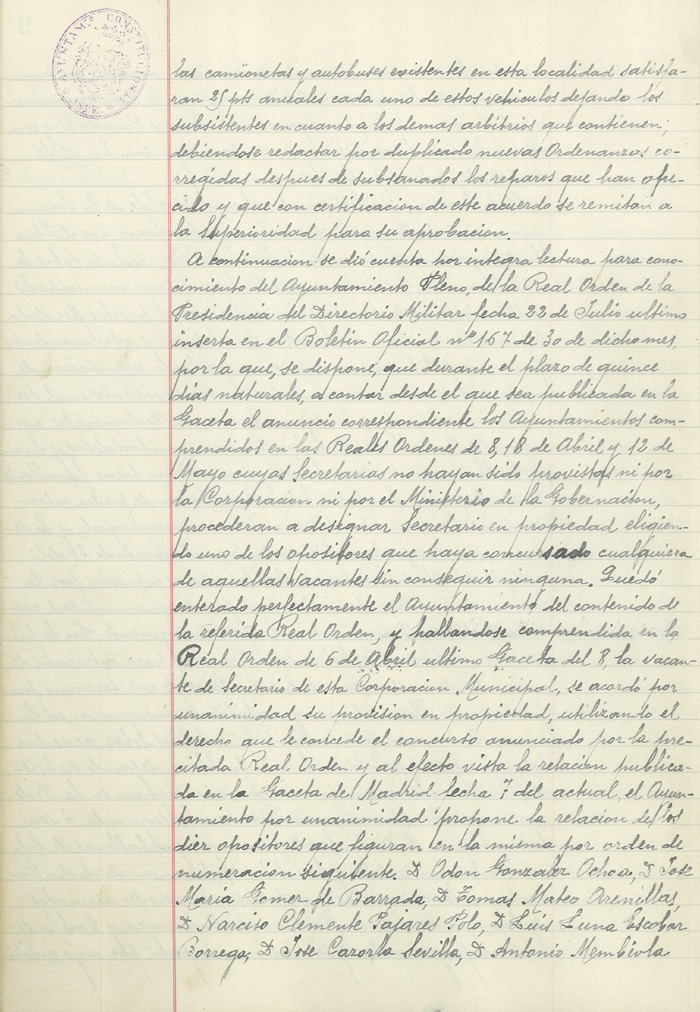 AYUNTAM. CONSTITUCIONAL
las camionetas y autobuses existentes en esta localidad satisfa-
ran 25 pts anuales cada uno de estos vehiculos dejando los
subsistentes en cuanto a los demas arbitrios que contienen;
debiendose redactar por duplicado nuevas Ordenanzas co-
rregidas despues de subsanados los reparos que han ofre-
cido y que con certificacion de este acuerdo se remitan a
la Superioridad para su aprobacion.
A continuacion se dió cuenta por integra lectura para cono-
cimiento del Ayuntamiento Pleno, de la Real Orden de la
Presidencia del Directorio Militar fecha 22 de Julio ultimo
inserta en el Boletin Oficial nº 167 de 30 de dicho mes,
por la que, se dispone, que durante el plazo de quince
dias naturales, a contar desde el que sea publicada en la
Gaceta el anuncio correspondiente los Ayuntamientos com-
prendidos en las Reales Ordenes de 8, 18 de Abril y 12 de
Mayo cuyas Secretarias no hayan sido provistas ni por
la Corporacion ni por el Ministerio de la Gobernacion,
procederan a designar Secretario en propiedad eligien-
do uno de los opositores que haya concursado cualquiera
de aquellas vacantes sin conseguir ninguna. Quedó
enterado perfectamente el Ayuntamiento del contenido de
la referida Real Orden, y hallandose comprendida en la
Real Orden de 6 de Abril ultimo Gaceta del 8, la vacan-
te de Secretario de esta Corporacion Municipal, se acordó por
unanimidad su provision en propiedad, utilizando el
derecho que le concede el concurso anunciado por la pre-
citada Real Orden y al efecto vista la relacion publica-
da en la Gaceta de Madrid fecha 7 del actual, el Ayun-
tamiento por unanimidad propone la relacion de los
diez opositores que figuran en la misma por orden de
numeracion siguiente. D Odon Gonzalez Ochoa, D Jose
Maria Gomez de Barrada, D Tomas Mateo Arenillas,
D Narciso Clemente Pajares Polo, D Luis Luna Escobar
Borrego, D Jose Cazorla Sevilla, D Antonio Membivla